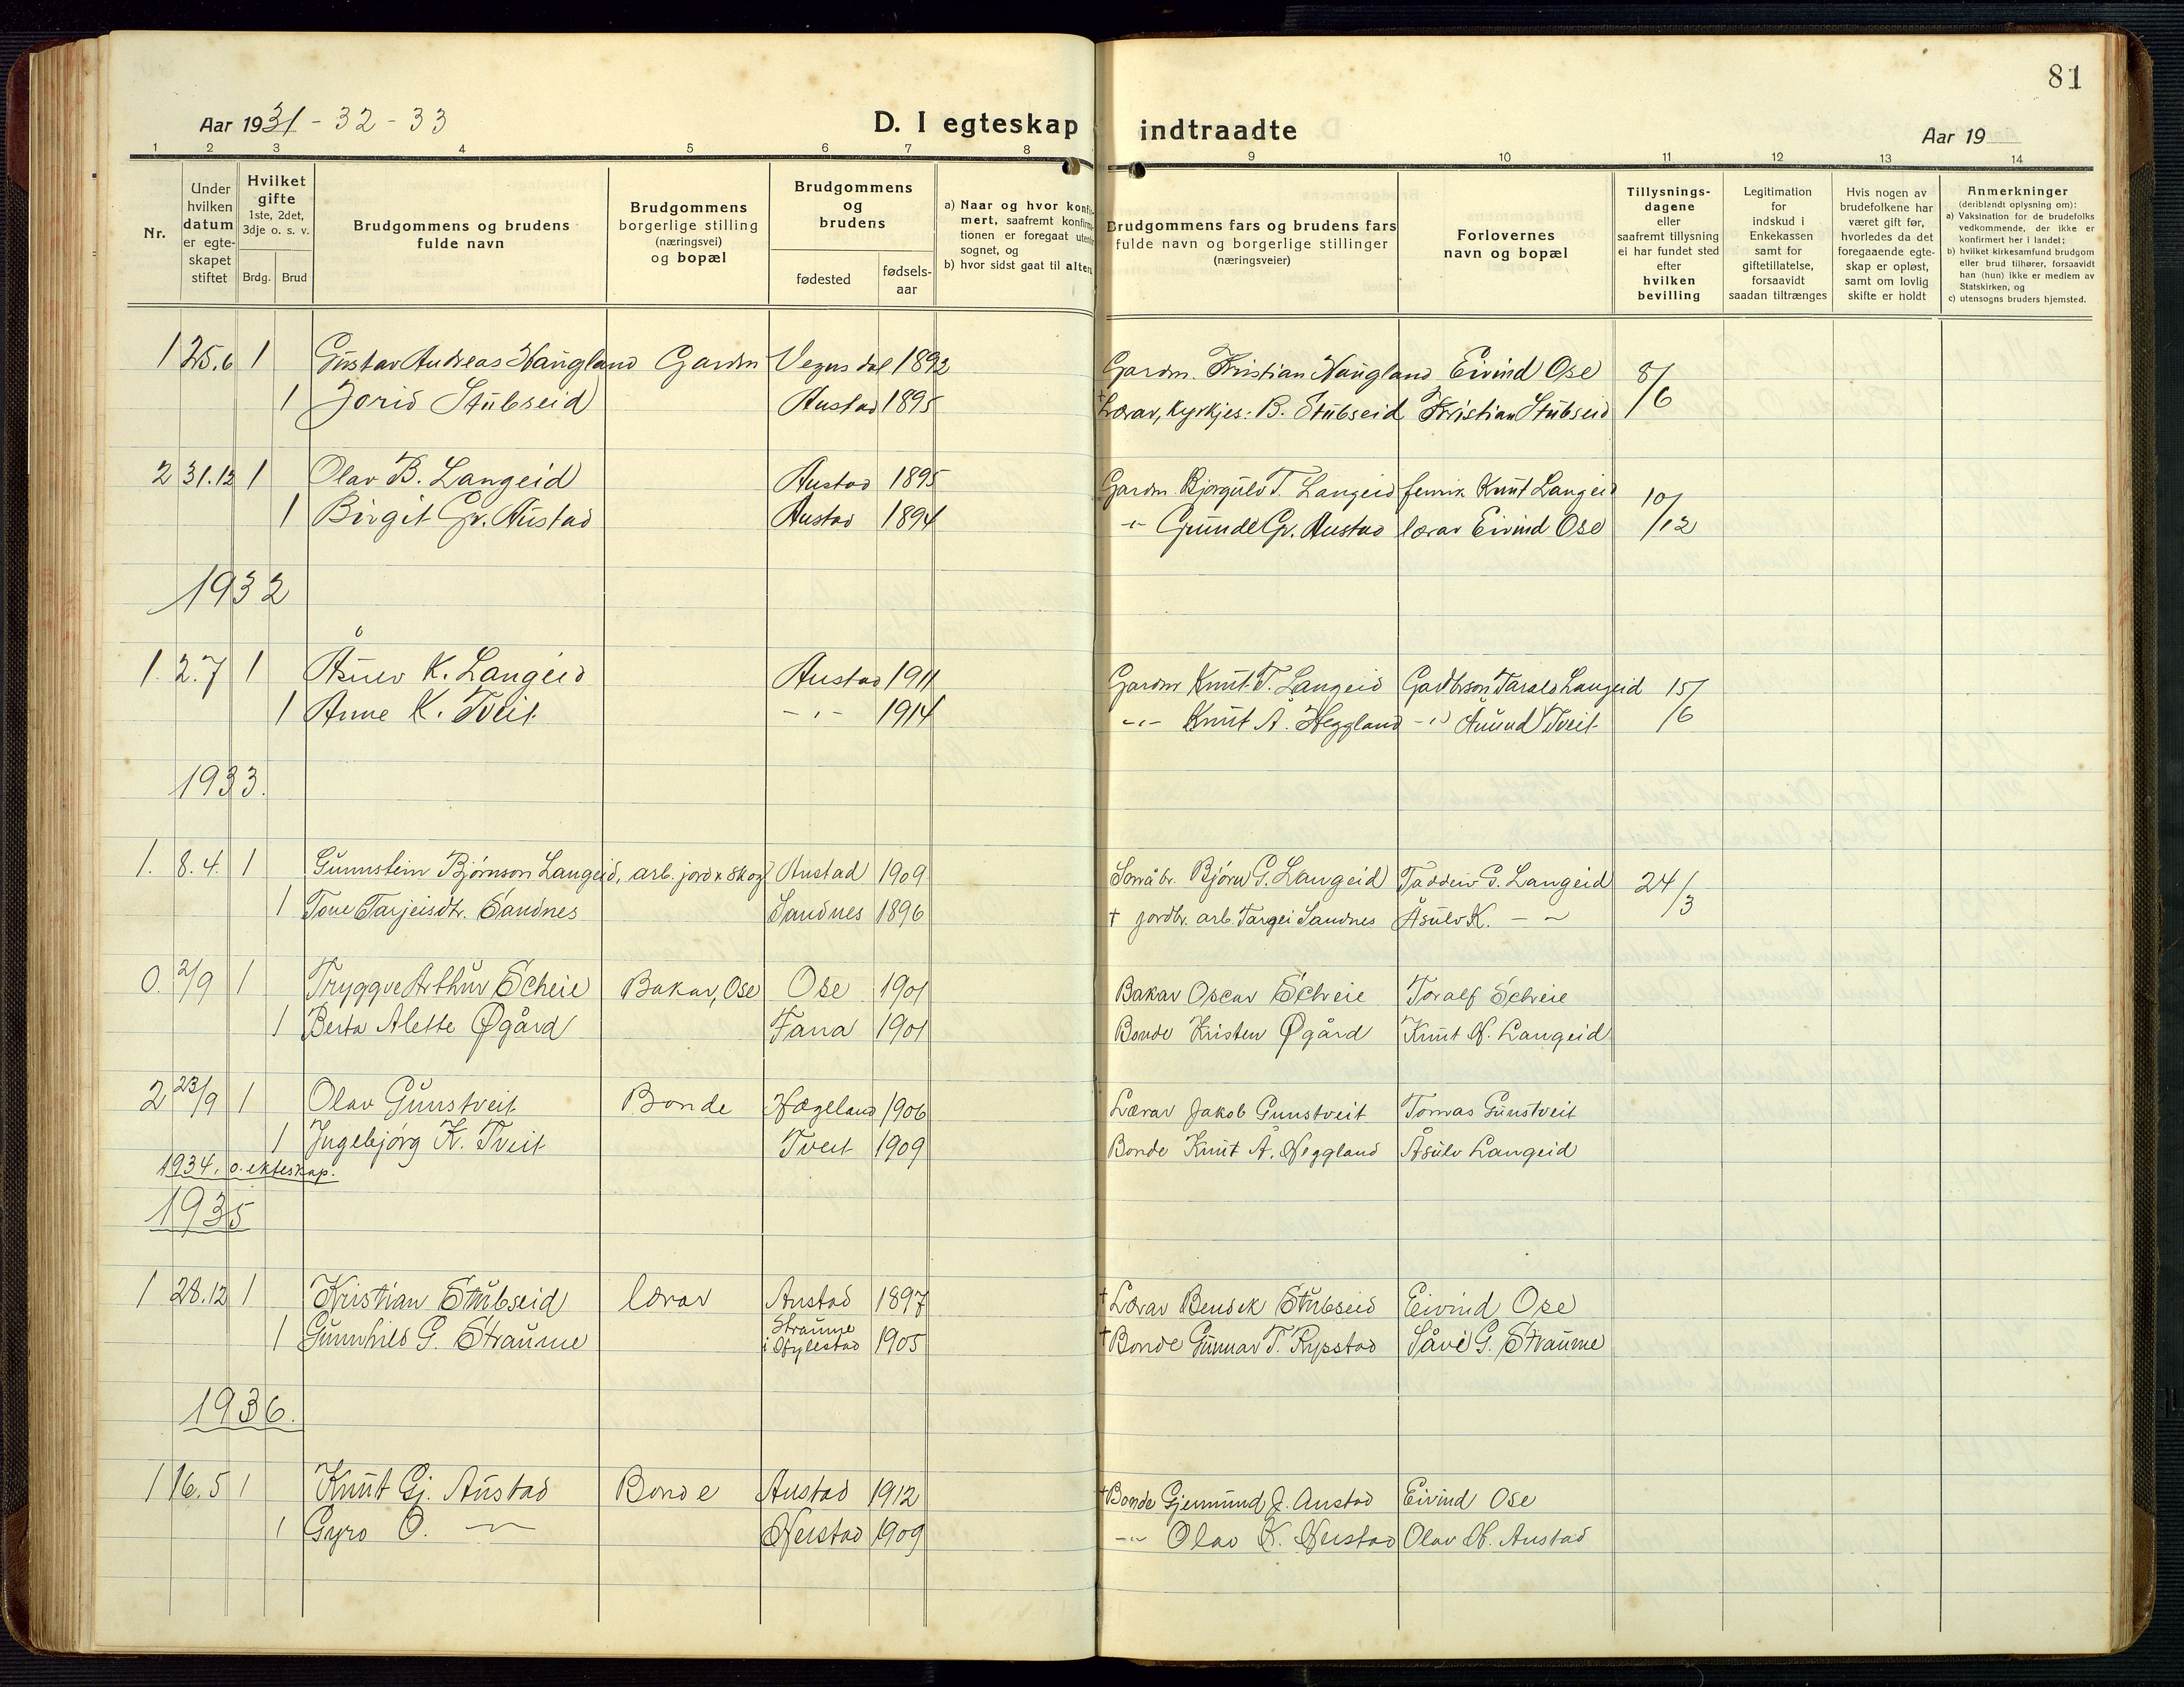 81
Aar 1931 - 32 - 33
D. I egteskap indtraadte
Aar 19
1 2 3 4 5 6 7 8 9 10 11 12 13 14
Nr.
Under hvilken datum er egte-skapet stiftet
Hvilket gifte 1ste, 2det, 3dje o. s. v.
Brdg. Brud
Brudgommens og brudens fulde navn
Brudgommens borgerlige stilling (næringsvei) og bopæl
Brudgommens og brudens
fødested
fødsels-aar
a) Naar og hvor konfir-mert, saafremt konfirma-tionen er foregaat utenfor sognet, og
b) hvor sidst gaat til alters
Brudgommens fars og brudens fars fulde navn og borgerlige stillinger (næringsveier)
Forlovernes navn og bopæl
Tillysnings-dagene eller saafremt tillysning ei har fundet sted efter hvilken bevilling
Legitimation for indskud i Enkekassen samt for giftetillatelse, forsaavidt saadan tiltrænges
Hvis nogen av brudefolkene har været gift før, hvorledes da det foregaaende egte-skap er opløst, samt om lovlig skifte er holdt
Anmerkninger (deriblandt oplysning om):
a) Vaksination for de brudefolks vedkommende, der ikke er konfirmert her i landet;
b) hvilket kirkesamfund brudgom eller brud tilhører, forsaavidt han (hun) ikke er medlem av Statskirken, og
c) utensogns bruders hjemsted.
1 25.6 1 Gustav Andreas Haugland Gardm Vegusdal 1892 Gardm. Kristian Haugland Eivind Ose 8/6
1 Jorid Stubseid Austad 1895 † Lærar, kyrkjes: B. Stubseid Kristian Stubseid
2 31.12 1 Olav B. Langeid Austad 1895 Gardm. Bjørgulv T. Langeid fenrik Knut Langeid 10/12
1 Birgit Gr. Austad Austad 1894 -"- Grunde Gr. Austad lærar Eivind Ose
1932
1. 2.7 1 Åsulv K. Langeid Austad 1911 Gardm Knut T. Langeid Gardbrson Tarald Langeid 15/6
1 Anne K. Tveit -"- 1914 -"- Knut Å. Heggland -"- Åmund Tveit
1933.
1. 8.4. 1 Gunnstein Bjørnson Langeid, arb. jord & skog Austad 1909 Småbr. Bjørn G. Langeid Taddeiv G. Langeid 24/3
1 Tone Tarjeisdtr. Sandnes Sandnes 1896 † jordbr. arb. Targei Sandnes Åsulv K. - "
0. 2/9 1 Tryggve Arthur Scheie Bakar, Ose Ose 1901 Bakar Oscar Scheie Toralf Scheie
1 Berta Alette Øgård Fana 1901 Bonde Kristen Øgård Knut H. Langeid
2 23/9 1 Olav Gunstveit Bonde Hægeland 1906 Lærar Jakob Gunstveit Tomas Gunstveit
1 Ingebjørg K. Tveit Tveit 1909 Bonde Knut Å. Heggland Åsulv Langeid
1934. 0. ekteskap.
1935
1 28.12 1 Kristian Stubseid lærar Austad 1897 † Lærar Bendik Stubseid Eivind Ose
1 Gunnhild G. Straume Straume i Hylestad 1905 † Bonde Gunnar T. Rysstad Såvé G. Straume
1936.
1 16.5 1 Knut Gj. Austad Bonde Austad 1912 † Bonde Gjermund J. Austad Eivind Ose
1 Gyro O. -"- Neistad 1909 -"- Olav K. Neistad Olav H. Austad